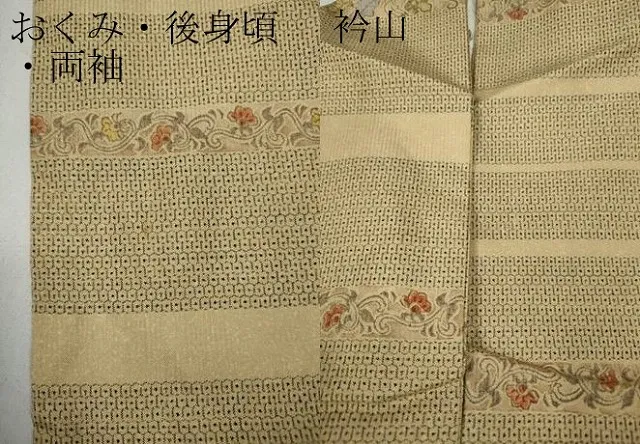 おくみ・後身頃　衿山
・両袖